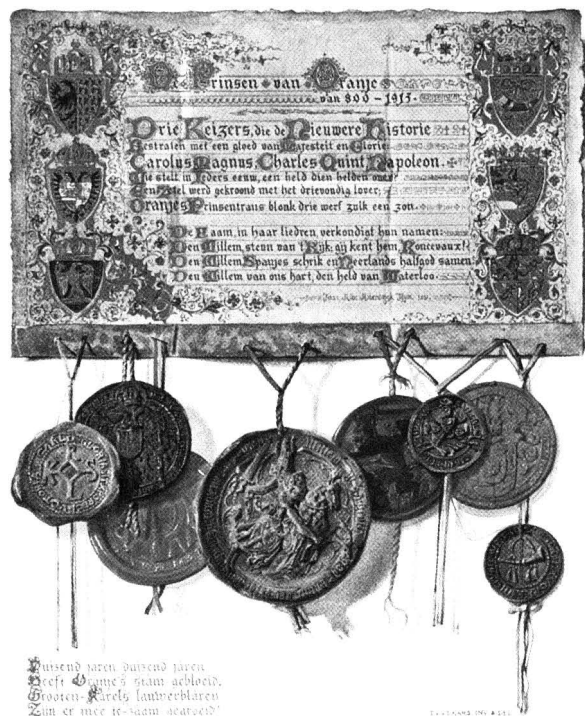 De Prinsen van Oranje
van 800 - 1815.
Drie Keizers, die de Nieuwere Historie
Bestralen met een gloed van Majesteit en Glorie:
Carolus Magnus, Charles Quint, Napoleon.
Wie stelt in ieders eeuw, een held dien helden over?
Een Stel werd gekroond met het drievoudig lover;
Oranjes Prinsentrans blonk drie werf zulk een zon.
De Faam, in haar liedren, verkondigt hun namen:
Den Willem, steun van 't Rijk; gij kent hem, Roncevaux!
Den Willem, Spanjes schrik en Neerlands halfgod samen:
Den Willem van ons hart, den held van Waterloo.
Duizend jaren duizend jaren
Heeft Oranje's stam gebloeid.
Grooten-Karels lauwerblaren
Zijn er mee te-zaam gegroeid!